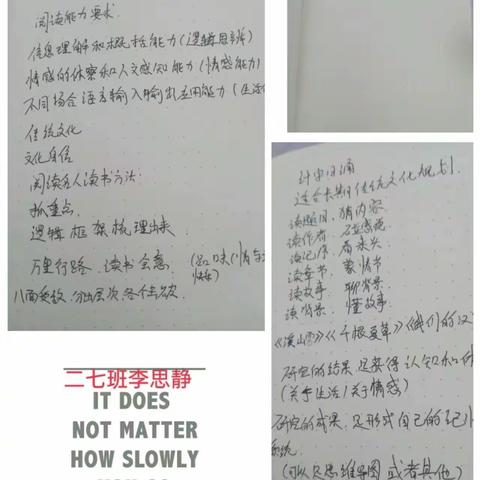 阅读能力要求
信息理解和概括能力(逻辑思辨)
情感的体察和人文感知能力(情感能力)
不同场合语言输入输出运用能力(生活
传统文化
文化自信
阅读名人读书方法:
抓重点
逻辑框架梳理出来
万里行路、读书会意.
八面受敌.分出层次各个击破.
二七班李思静
IT DOES
NOT MATTER
HOW SLOWLY
适合长期传统文化规划
读题目,猜内容
读作者,
读故事,聊背景
读背景,懂故事
《千根夏草》《我们的汉
研究的结果是获得认知和
(关于生活/关于情感)
研究的成果,是形式自己的
系统
(可以是思维导图或者其他)